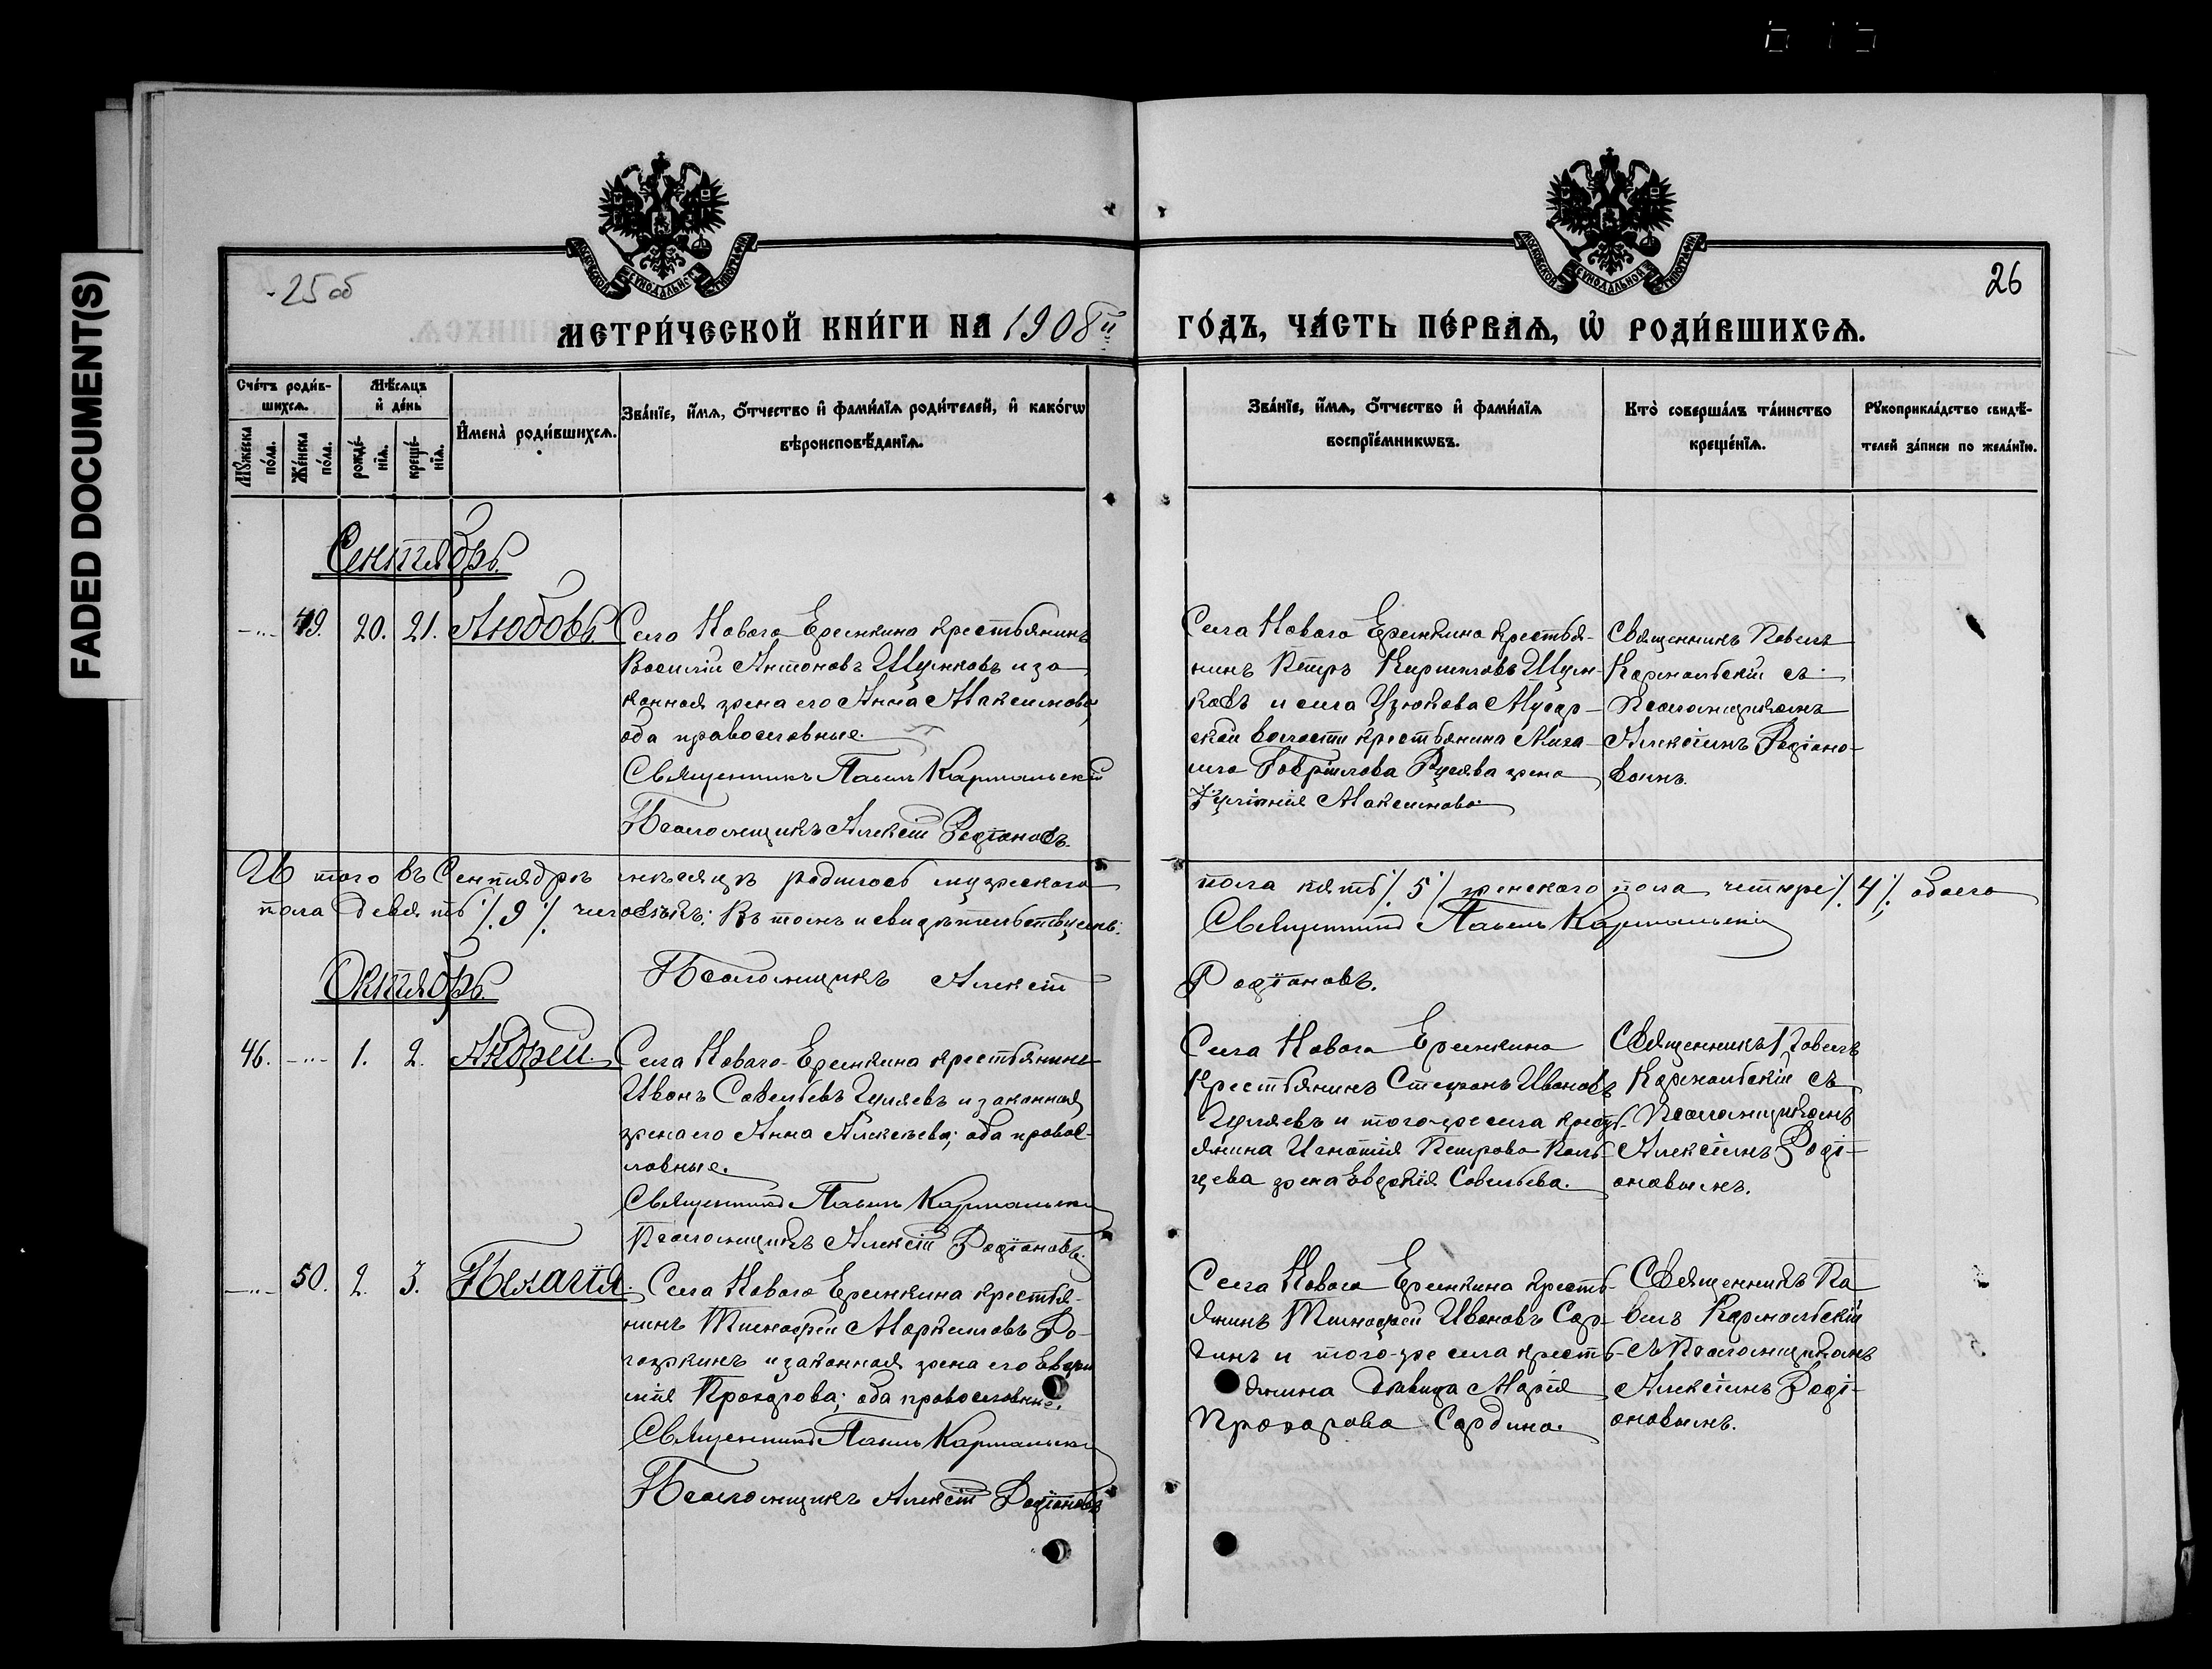 FADED DOCUMENT(S)
25 об
26
МОСКОВСКОЙ СѴНОДАЛЬНОЙ ТИПОГРАФІИ
МОСКОВСКОЙ СѴНОДАЛЬНОЙ ТИПОГРАФІИ
МЕТРИ́ЧЕСКОЙ КНИ́ГИ НА 1908й
ГО́ДЪ, ЧА́СТЬ ПЕ́РВАѦ, Ѡ РОДИ́ВШИХСѦ.
Сче́тъ роди́в-
шихсѧ.
Мѣ́сѧцъ
и҆ де́нь
Мꙋ́жеска
по́ла.
Же́нска
по́ла.
рожде́-
нїѧ.
креще́-
нїѧ.
И҆мена̀ роди́вшихсѧ.
Зва́нїе, и҆́мѧ, ѻ҆́тчество и҆ фами́лїѧ роди́телей, и҆ како́гѡ
вѣроисповѣ́данїѧ.
Зва́нїе, и҆́мѧ, ѻ҆́тчество и҆ фами́лїѧ
воспрїе́мникѡвъ.
Кто̀ соверша́лъ та́инство
креще́нїѧ.
Рꙋкоприкла́дство свидѣ́-
телей за́писи по жела́нїю.
Сентябрь.
-..- 49. 20. 21. Любовь
Села Новаго Еремкина крестьянинъ
Василій Антоновъ Щунковъ и за
конная жена его Анна Максимова,
оба православные.
Священникъ Павелъ Кармальскій
Псаломщикъ Алексій Родіоновъ.
Села Новаго Еремкина крестья-
нинъ Петръ Кириловъ Щун-
ковъ и села Узюкова Мусор-
ской волости крестьянина Миха-
ила Гаврилова жена
Максимова
Священникъ Павелъ
Кармальскій съ
Псаломщикомъ
Алексіемъ Родіоно-
вымъ.
И того въ Сентябрѣ мѣсяцѣ родилось мужескаго
пола пять /. 5 /. женскаго пола четыре /. 4 /. обоего
пола девять /. 9 /. человѣкъ: Въ томъ и свидѣтельствуемъ:
Священникъ Павелъ Кармальскій
Псаломщикъ Алексій
Родіоновъ.
Октябрь.
46. -..- 1. 2. Андрей.
Села Новаго-Еремкина крестьянинъ
Иванъ Савельевъ Гуляевъ и законная
жена его Анна Алексѣева; оба правос-
лавные.
Священникъ Павелъ Кармальскій
Псаломщикъ Алексій Родіоновъ.
Села Новаго Еремкина
Крестьянинъ Стефанъ Ивановъ
Гуляевъ и того-же села крест-
янина Игнатія Петрова Каль-
цева жена Евдокія Савельева.
Священникъ Павелъ
Кармальскій съ
Псаломщикомъ
Алексіемъ Роді-
оновымъ.
-..- 50. 2. 3. Пелагія
Села Новаго Еремкина крестья-
нинъ Тимофей Маркеловъ Ро-
гожкинъ и законная жена его Евфи
мія Прохорова; оба православные.
Священникъ Павелъ Кармальскій
Псаломщикъ Алексій Родіоновъ
Села Новаго Еремкина кресть-
янинъ Тимофей Ивановъ Сар-
динъ и того-же села кресть-
янина Давида Марія
Прохорова Сардина.
Священникъ Па
велъ Кармальскій
съ Псаломщикомъ
Алексіемъ Роді-
оновымъ.